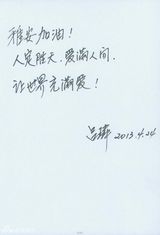 雅安加油！
人定胜天，爱满人间，
让世界充满爱！
2013.4.24